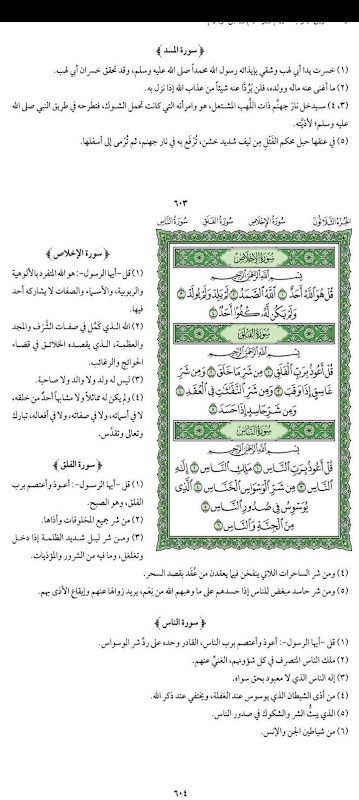 ﴿ سورة المسد ﴾
(١) خسرت يدا أبي لهب وشقي بإيذائه رسول الله محمداً صلى الله عليه وسلم، وقد تحقق خسران أبي لهب.
(٢) ما أغنى عنه ماله وولده، فلن يَرُدَّا عنه شيئاً من عذاب الله إذا نزل به.
(٣، ٤) سيدخل نار جهنَّم ذات اللَّهب المشتعل، هو وامرأته التي كانت تحمل الشوك، فتطرحه في طريق النبي صلى الله
عليه وسلم؛ لأذيَّته.
(٥) في عنقها حبل محكم الفَتْل مِن ليف شديد خشن، تُرْفَع به في نار جهنم، ثم تُرْمى إلى أسفلها.
٦٠٣
الجزء الثلاثون سورة الإخلاص سورة الفلق سورة الناس
سورة الإخلاص
بسم الله الرحمن الرحيم
قُلْ هُوَ اللَّهُ أَحَدٌ ١ اللَّهُ الصَّمَدُ ٢ لَمْ يَلِدْ وَلَمْ يُولَدْ ٣
وَلَمْ يَكُن لَّهُ كُفُوًا أَحَدٌ ٤
سورة الفلق
بسم الله الرحمن الرحيم
قُلْ أَعُوذُ بِرَبِّ الْفَلَقِ ١ مِن شَرِّ مَا خَلَقَ ٢ وَمِن شَرِّ
غَاسِقٍ إِذَا وَقَبَ ٣ وَمِن شَرِّ النَّفَّاثَاتِ فِي الْعُقَدِ ٤
وَمِن شَرِّ حَاسِدٍ إِذَا حَسَدَ ٥
سورة الناس
بسم الله الرحمن الرحيم
قُلْ أَعُوذُ بِرَبِّ النَّاسِ ١ مَلِكِ النَّاسِ ٢ إِلَٰهِ
النَّاسِ ٣ مِن شَرِّ الْوَسْوَاسِ الْخَنَّاسِ ٤ الَّذِي
يُوَسْوِسُ فِي صُدُورِ النَّاسِ ٥
مِنَ الْجِنَّةِ وَالنَّاسِ ٦
﴿ سورة الإخلاص ﴾
(١) قل -أيها الرسول-: هو الله المتفرد بالألوهية
والربوبية، والأسماء والصفات لا يشاركه أحد
فيها.
(٢) الله الذي كَمُل في صفات الشَّرف والمجد
والعظمة، الذي يقصده الخلائق في قضاء
الحوائج والرغائب.
(٣) ليس له ولد ولا والد ولا صاحبة.
(٤) ولم يكن له مماثلاً ولا مشابهاً أحد من خلقه،
لا في أسمائه، ولا في صفاته، ولا في أفعاله، تبارك
وتعالى وتقدَّس.
﴿ سورة الفلق ﴾
(١) قل -أيها الرسول-: أعوذ وأعتصم برب
الفلق، وهو الصبح.
(٢) من شر جميع المخلوقات وأذاها.
(٣) ومن شر ليل شديد الظلمة إذا دخل
وتغلغل، وما فيه من الشرور والمؤذيات.
(٤) ومن شر الساحرات اللاتي ينفخن فيما يعقدن من عُقَد بقصد السحر.
(٥) ومن شر حاسد مبغض للناس إذا حسدهم على ما وهبهم الله من نِعَم، يريد زوالها عنهم وإيقاع الأذى بهم.
﴿ سورة الناس ﴾
(١) قل -أيها الرسول-: أعوذ وأعتصم برب الناس، القادر وحده على ردِّ شر الوسواس.
(٢) ملك الناس المتصرف في كل شؤونهم، الغنيِّ عنهم.
(٣) إله الناس الذي لا معبود بحق سواه.
(٤) من أذى الشيطان الذي يوسوس عند الغفلة، ويختفي عند ذكر الله.
(٥) الذي يبثُّ الشر والشكوك في صدور الناس.
(٦) من شياطين الجن والإنس.
٦٠٤